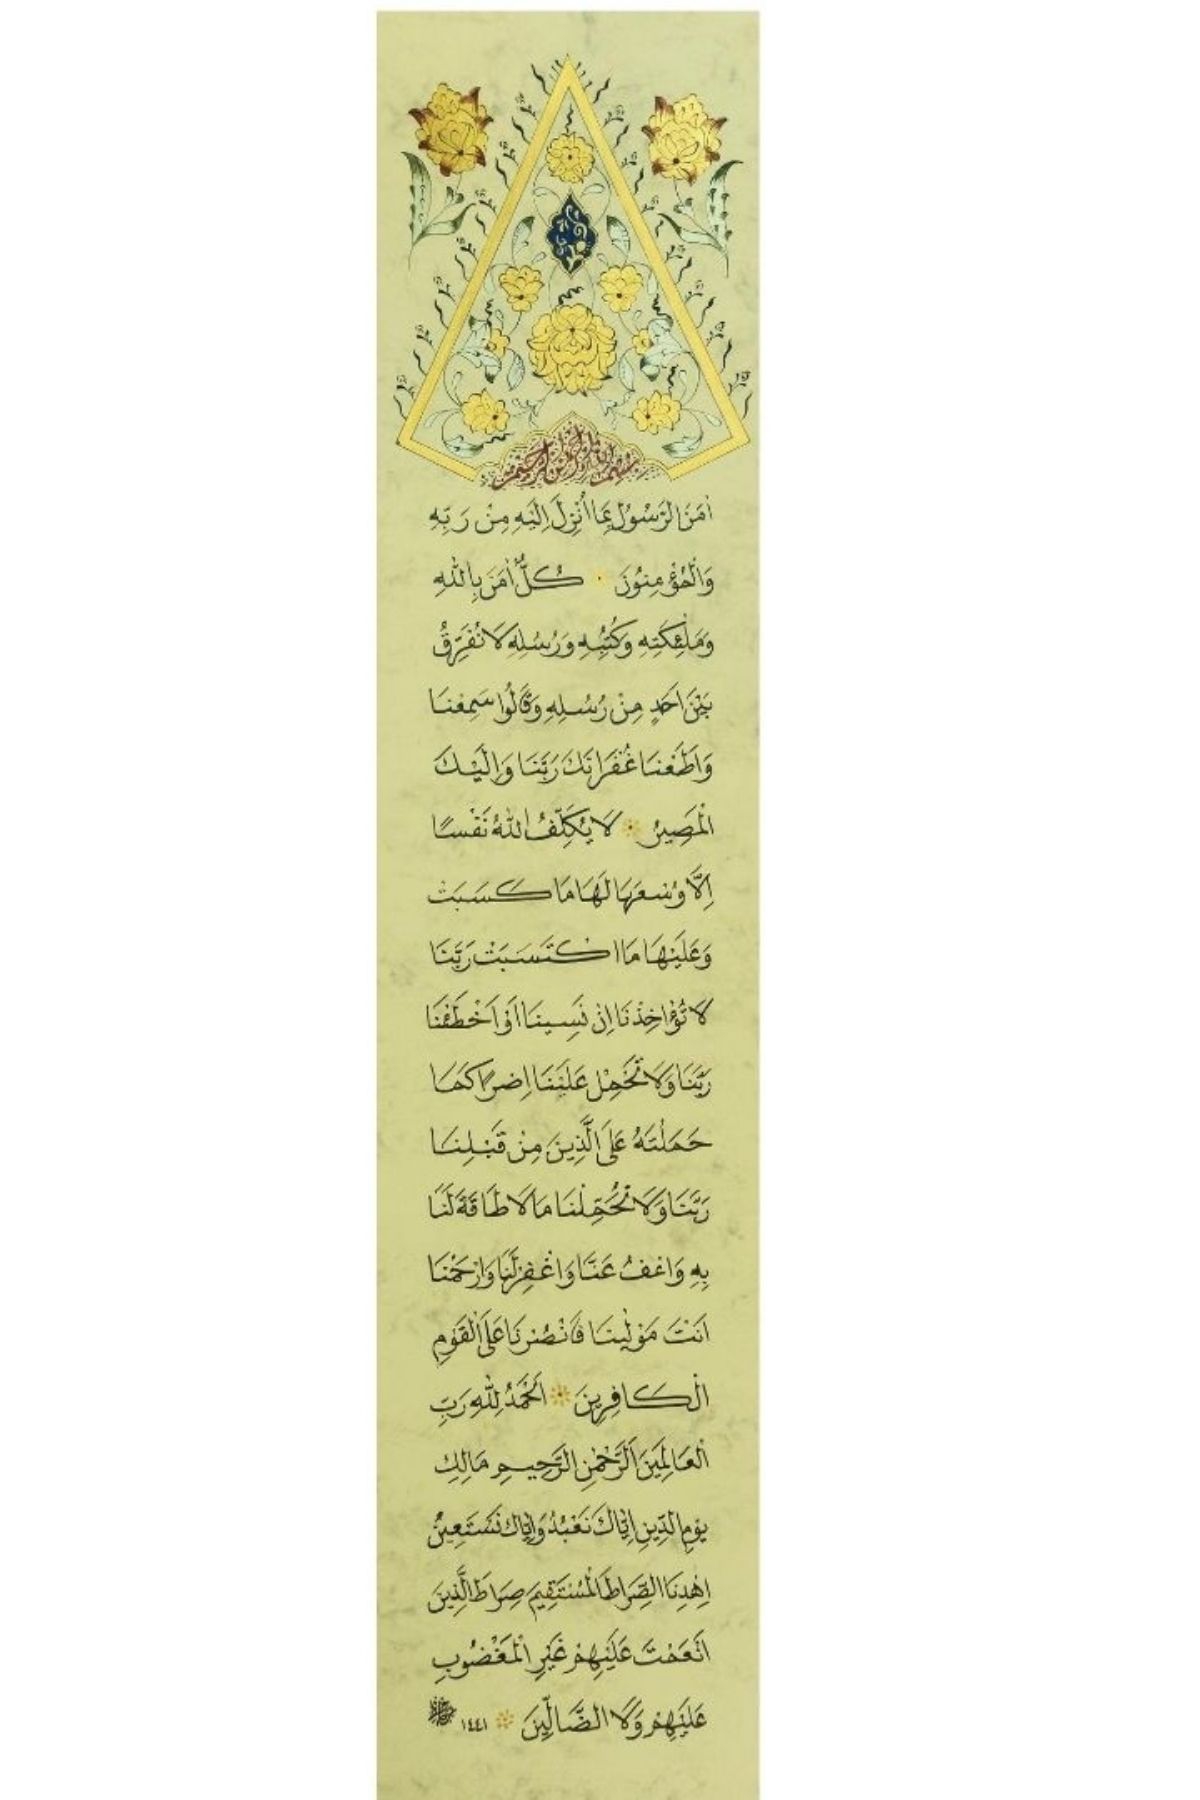 بسم الله الرحمن الرحيم
اٰمَنَ الرَّسُولُ بِمَا اُنْزِلَ اِلَيْهِ مِنْ رَبِّهِ
وَالْمُؤْمِنُونَ كُلٌّ اٰمَنَ بِاللّٰهِ
وَمَلٰئِكَتِهِ وَكُتُبِهِ وَرُسُلِهِ لَا نُفَرِّقُ
بَيْنَ اَحَدٍ مِنْ رُسُلِهِ وَقَالُوا سَمِعْنَا
وَاَطَعْنَا غُفْرَانَكَ رَبَّنَا وَاِلَيْكَ
الْمَصِيرُ لَا يُكَلِّفُ اللّٰهُ نَفْسًا
اِلَّا وُسْعَهَا لَهَا مَا كَسَبَتْ
وَعَلَيْهَا مَا اكْتَسَبَتْ رَبَّنَا
لَا تُؤَاخِذْنَا اِنْ نَسِينَا اَوْ اَخْطَئْنَا
رَبَّنَا وَلَا تَحْمِلْ عَلَيْنَا اِصْرًا كَمَا
حَمَلْتَهُ عَلَى الَّذِينَ مِنْ قَبْلِنَا
رَبَّنَا وَلَا تُحَمِّلْنَا مَا لَا طَاقَةَ لَنَا
بِهِ وَاعْفُ عَنَّا وَاغْفِرْ لَنَا وَارْحَمْنَا
اَنْتَ مَوْلٰينَا فَانْصُرْنَا عَلَى الْقَوْمِ
الْكَافِرِينَ اَلْحَمْدُ لِلّٰهِ رَبِّ
الْعَالَمِينَ اَلرَّحْمٰنِ الرَّحِيمِ مَالِكِ
يَوْمِ الدِّينِ اِيَّاكَ نَعْبُدُ وَاِيَّاكَ نَسْتَعِينُ
اِهْدِنَا الصِّرَاطَ الْمُسْتَقِيمَ صِرَاطَ الَّذِينَ
اَنْعَمْتَ عَلَيْهِمْ غَيْرِ الْمَغْضُوبِ
عَلَيْهِمْ وَلَا الضَّالِّينَ ١٤٤١